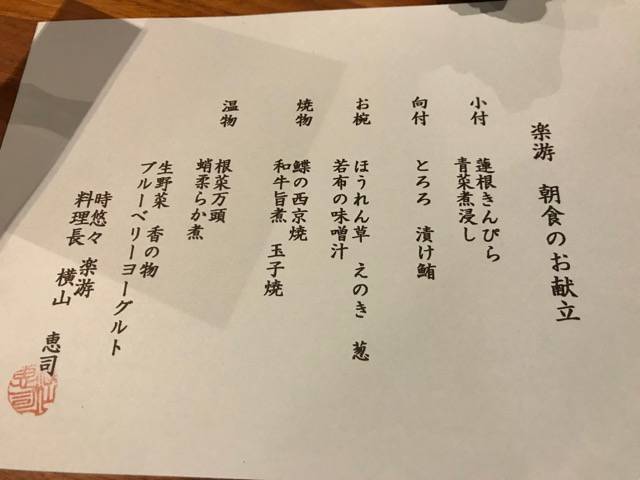 楽游　朝食のお献立
小付　蓮根きんぴら
青菜煮浸し
向付　とろろ　漬け鮪
お椀　ほうれん草　えのき　葱
若布の味噌汁
焼物　鰈の西京焼
和牛旨煮　玉子焼
温物　根菜万頭
蛸柔らか煮
生野菜　香の物
ブルーベリーヨーグルト
時悠々　楽游
料理長　横山　恵司